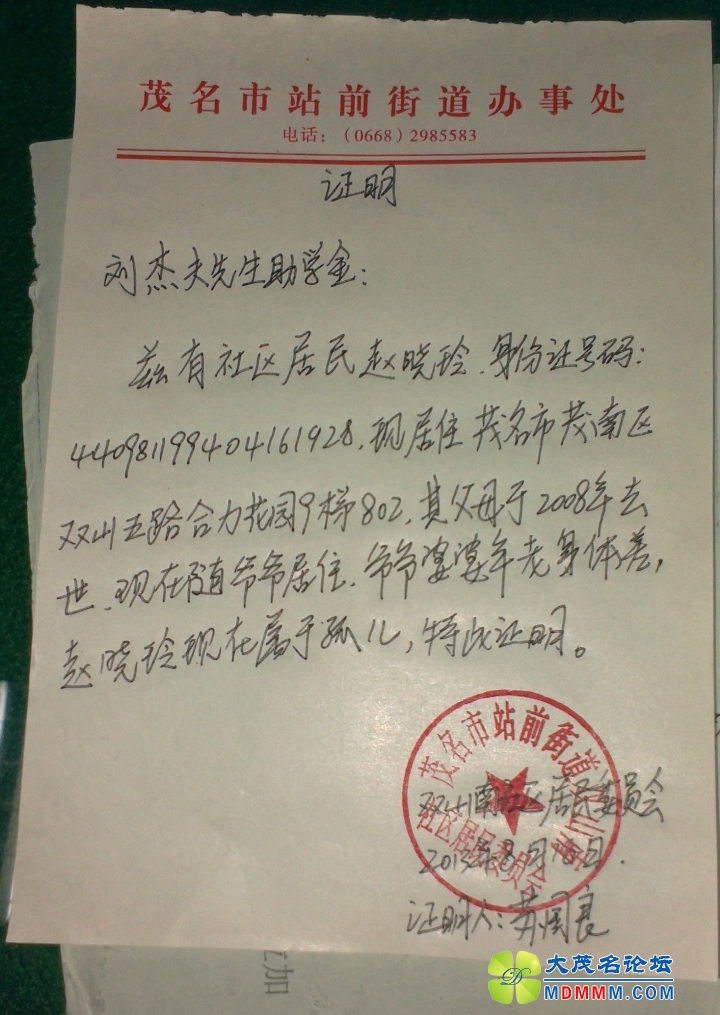 茂名市站前街道办事处
电话：（0668）2985583
证明
刘杰夫先生助学金：
兹有社区居民赵晓玲，身份证号码：
440981199404161928，现居住茂名市茂南区
双山五路合力花园9梯802，其父母于2008年去
世，现在随爷爷居住，爷爷婆婆年老身体差，
赵晓玲现在属于孤儿，特此证明。
茂名市站前街道双山南社区居民委员会
双山南社区居民委员会
2013年8月16日.
证明人：苏国良
加
大茂名论坛
MDMMM.COM